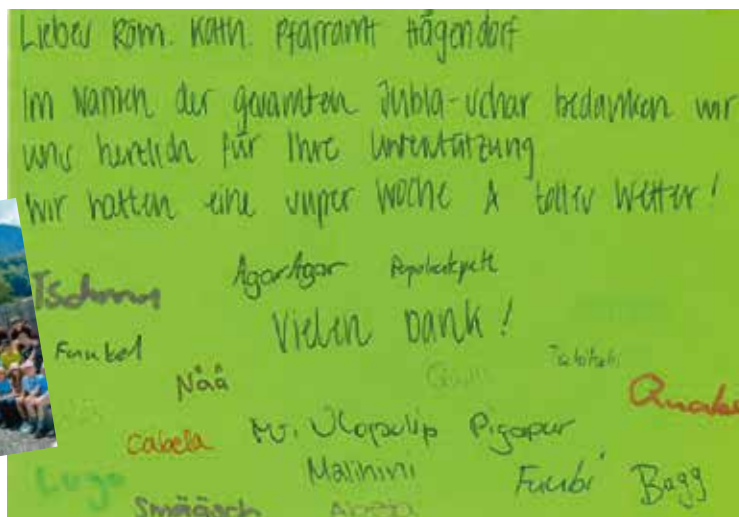 Liebes Röm. Kath. Pfarramt Hägendorf
Im Namen der gesamten Jubla-schar bedanken wir
uns herzlich für Ihre Unterstützung
Wir hatten eine super Woche & tolles Wetter!
AgarAgar
Vielen Dank!
Funkel
Nåå
Cabela
Pigapur
Malihini
Fuubi
Bagg
Lugo
Smääsch